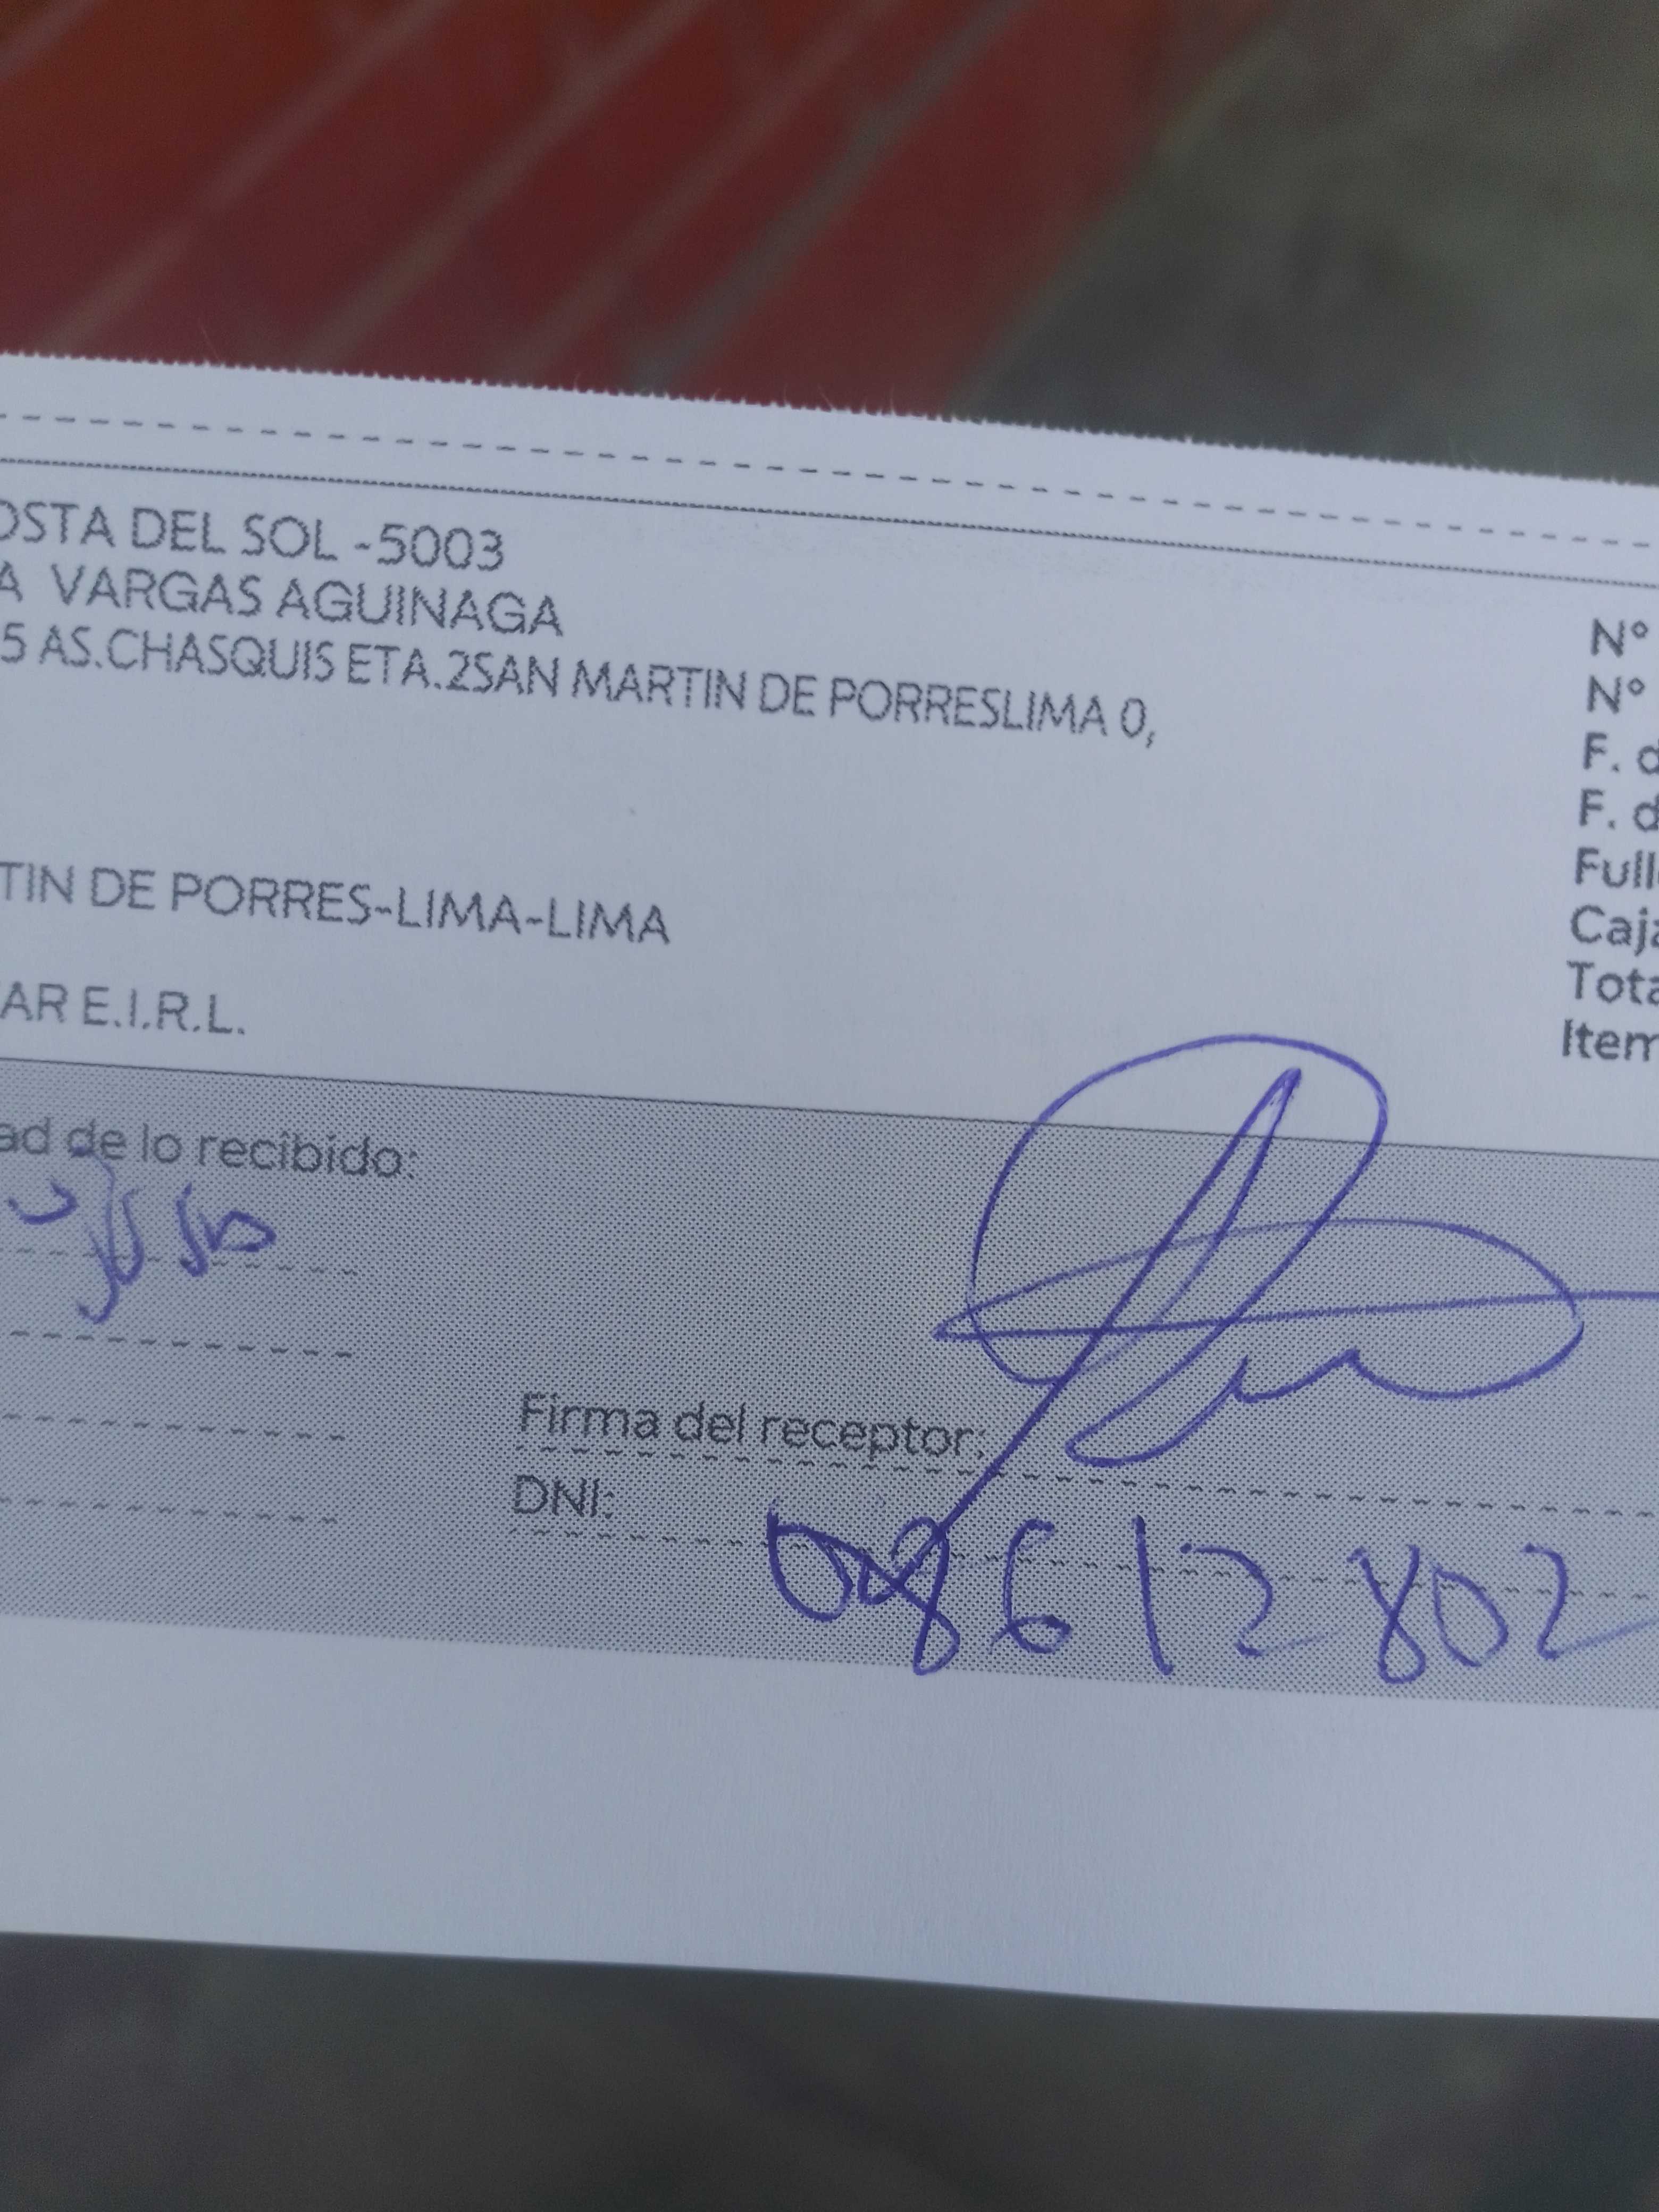 OSTA DEL SOL -5003
A VARGAS AGUINAGA
5 AS.CHASQUIS ETA.2SAN MARTIN DE PORRESLIMA 0,
TIN DE PORRES-LIMA-LIMA
AR E.I.R.L.
N°
N°
F. d
F. d
Full
Caja
Tota
Item
ad de lo recibido:
Firma del receptor:
DNI: 08612802